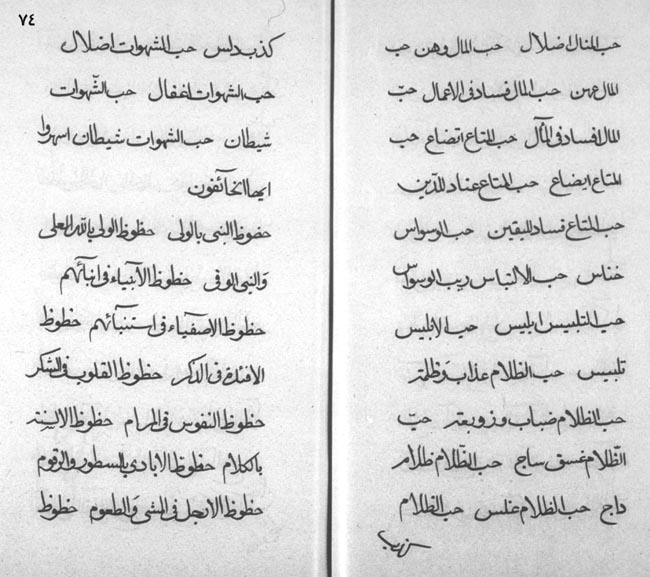 حب المنال اضلال حب المال وهن حب
المال عهن حب المال فساد فی الاعمال حبّ
المال افساد فی المآل حب المتاع اتضاع حب
المتاع ایضاع حب المتاع عناد للدّین
حب المتاع فساد للیقین حب الوسواس
خناس حب الالتباس ریب الوسواس
حب التلبیس ابلیس حب الابلیس
تلبیس حب الظلام عذاب وَظلمة
حب الظلام ضباب وزوبعة حبّ
الظّلام غسق ساج حب الظّلام ظلام
داج حب الظلام غلس حب الظلام
٧٤
کذب دلس حب الشهوات اضلال
حب الشهوات اغفال حب الشّهوات
شیطان حب الشهوات شیطان اسهروا
ایها الخآئفون
حضوظ النبی بالولی حظوظ الولی بالله العلی
وَالنبی الوفی حظوظ الأنبیاء فی انبآئهم
حظوظ الأصفیاء فی استنبآئهم حظوظ
الافئدة فی الذکر حظوظ القلوب فی الشکر
حظوظ النفوس فی المرام حظوظ الالسنة
بالکلام حظوظ الایادی بالسطور والرقوم
حظوظ الارجل فی المشی وَالطعوم حظوظ